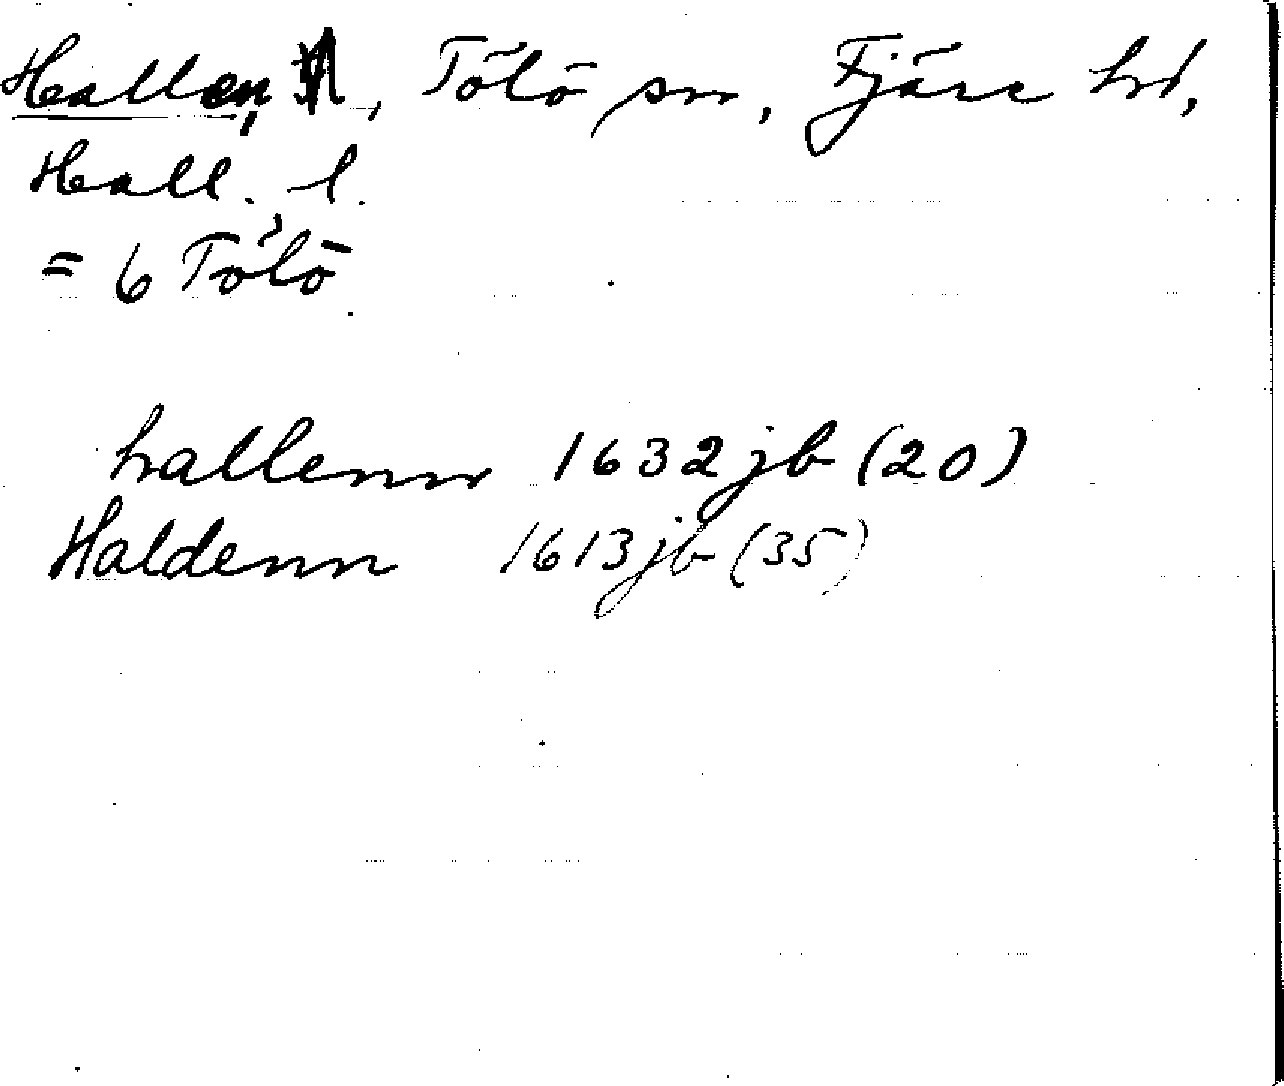 Hallen, Tölö sn, Fjäre hd,
Hall. l.
= 6 Tölö
hallenn 1632 jb (20)
Haldenn 1613 jb (35)